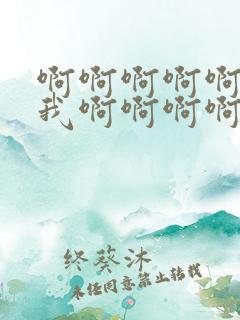 啊啊啊啊啊
我啊啊啊啊
终葵沐
未经同意禁止转载